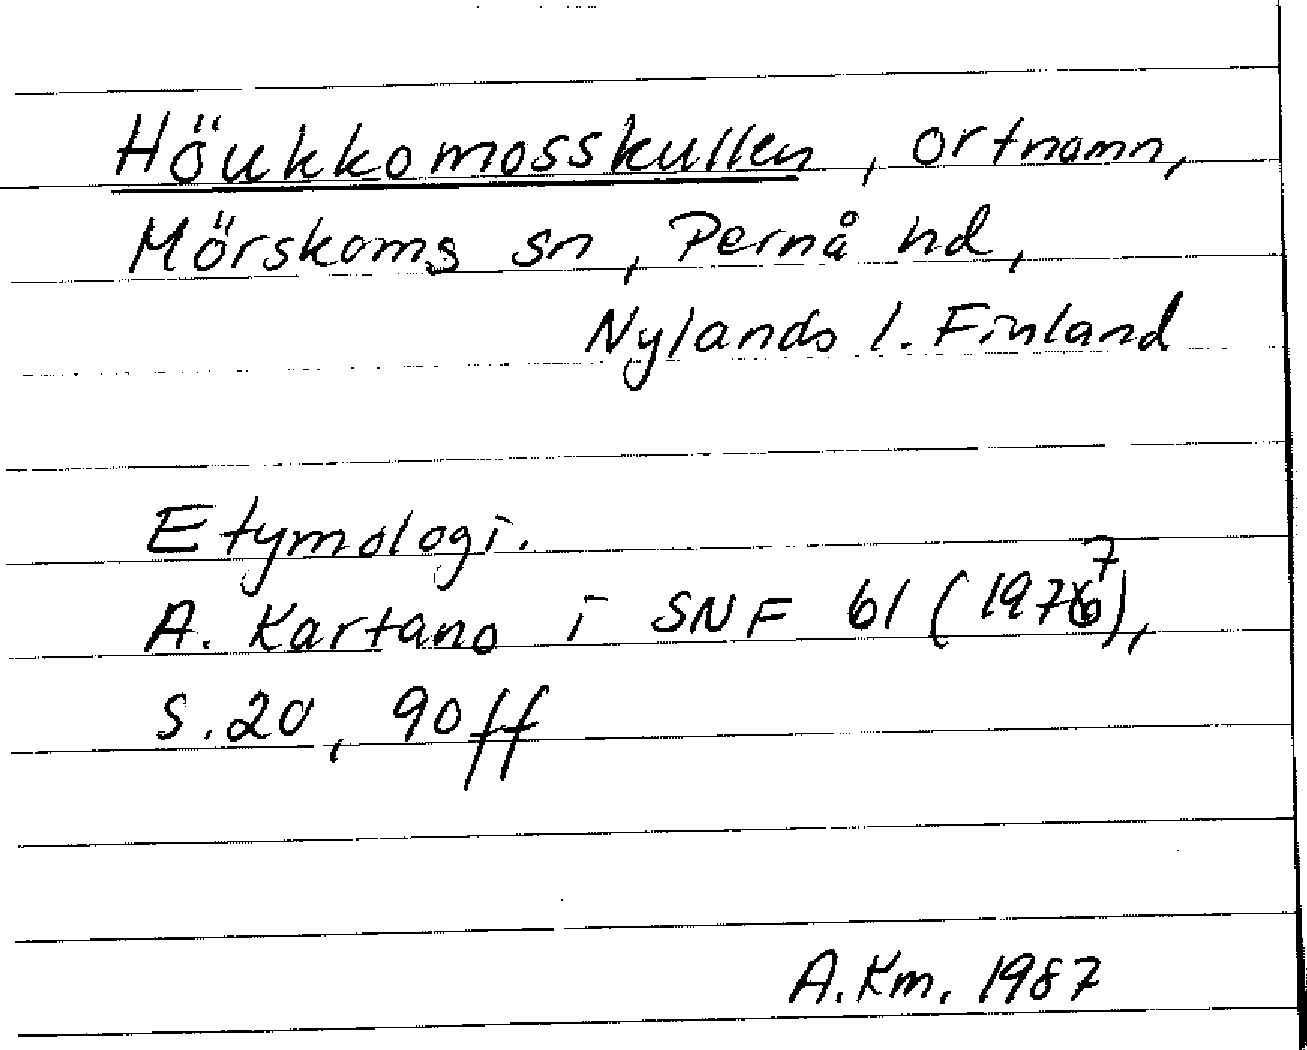 Höukkomosskullen, ortnamn,
Mörskoms sn, Pernå hd,
Nylands l. Finland
Etymologi.
A. Kartano i SNF 61 (1977),
s. 20, 90 ff
A.Km. 1987